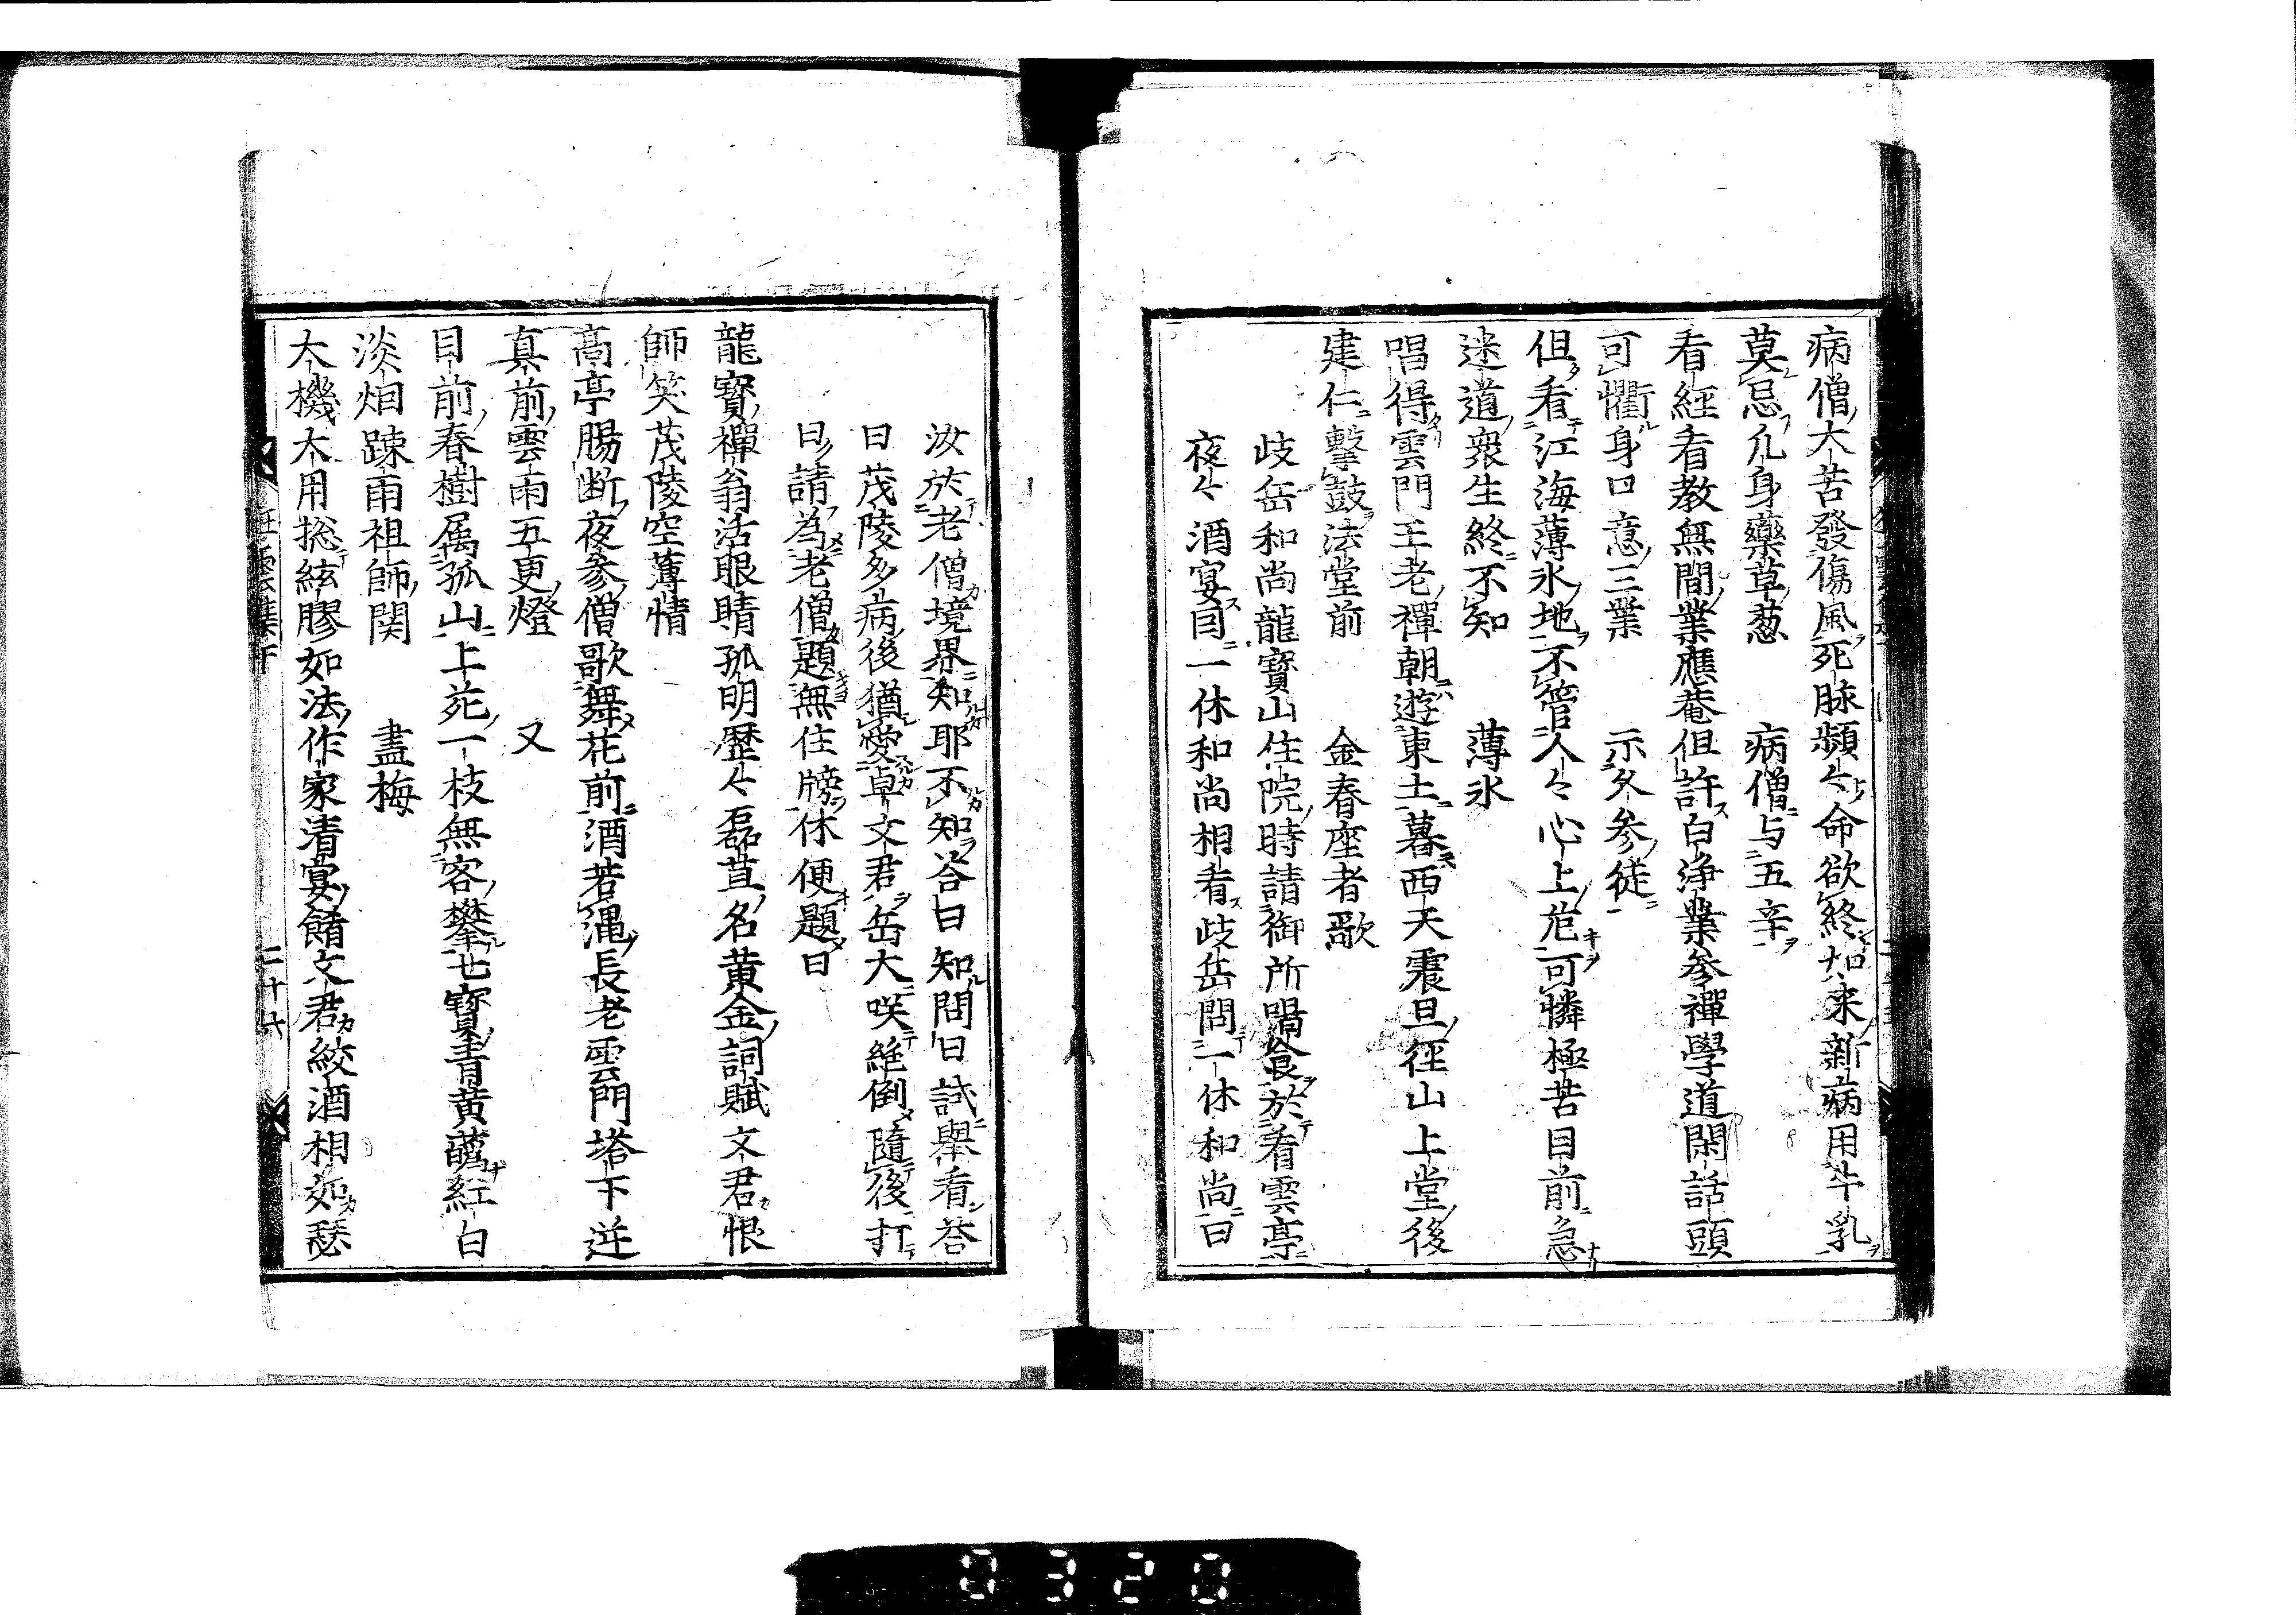 病僧大苦發傷風死脉頻〻命欲終如来新病用牛乳
莫忌凢身藥草葱　　病僧与五辛
看経看教無間業應菴但許白浄業参禪學道閑話頭
可懼身口意三業　　示久参徒
但看江海薄氷地不管人〻心上危可憐極苦目前急
迷道衆生終不知　　薄氷
唱得雲門王老禪朝遊東土暮西天震旦径山上堂後
建仁擊鼓法堂前　　金春座者歌
歧岳和尚龍寶山住院時請御所喝食於看雲亭
夜〻酒宴目一休和尚相看歧岳問一休和尚曰
汝於老僧境界知耶不知答曰知問曰試舉看答
曰茂陵多病後猶愛卓文君岳大咲絶倒隨後打
曰請為老僧題無住牓休便題曰
龍寶禪翁活眼睛孤明歷〻磊苴名黄金詞賦文君恨
師笑茂陵空薄情
高亭腸断夜参僧歌舞花前酒若澠長老雲門塔下逆
真前雲雨五更燈　　又
目前春樹属孤山上苑一枝無客攀七寶青黄蘸紅白
淡烟疎雨祖師関　　畫梅
大機大用捴絃膠如法作家清宴餚文君絞酒相如瑟
狂雲集下　二十六
0320